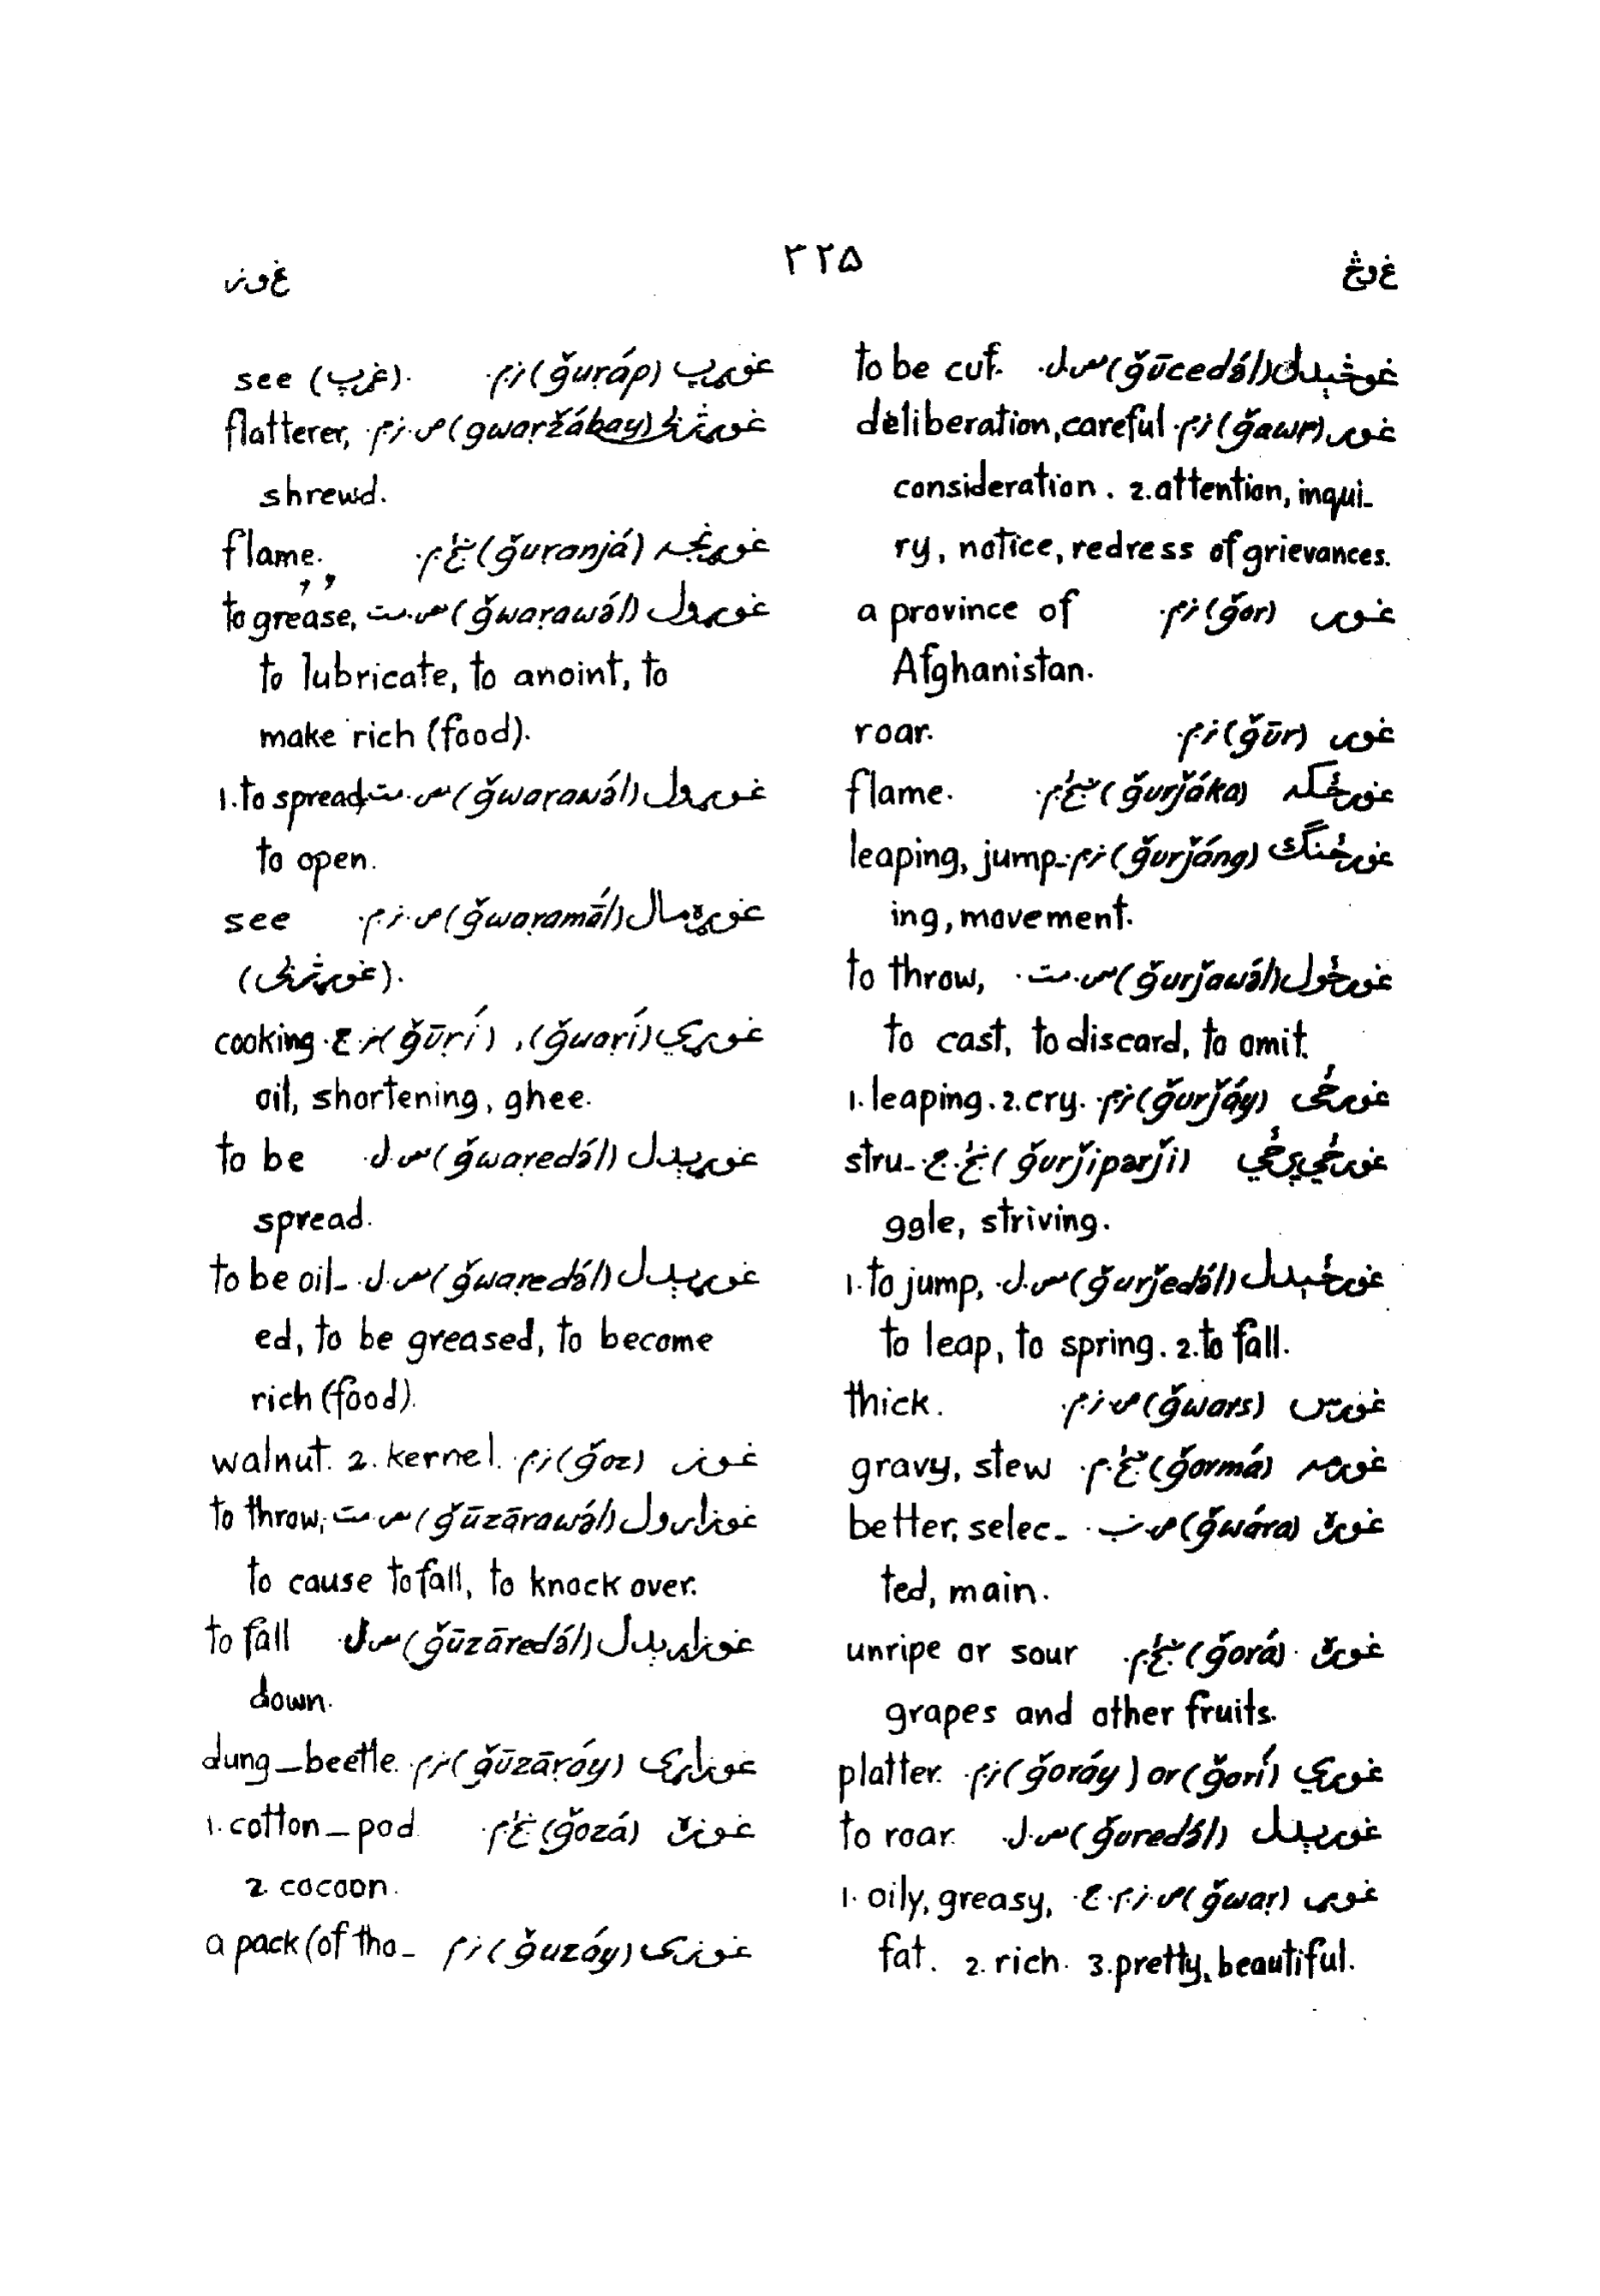 غوڅ ۳۲۵ غوز
غوڅېدل (ğūcedə́l) مص.ل. to be cut.
غور (ğawr) نر.م. deliberation, careful
consideration. 2. attention, inqui-
ry, notice, redress of grievances.
غور (ğor) نر.م. a province of
Afghanistan.
غور (ğūr) نر.م. roar.
غورځکه (ğurǰáka) ښځ.م. flame.
غورځنګ (ğurǰáng) نر.م. leaping, jump-
ing, movement.
غورځول (ğurǰawə́l) مص.مت. to throw,
to cast, to discard, to omit.
غورځی (ğurǰáy) نر.م. 1. leaping. 2. cry.
غورځي پرځي (ğurǰiparǰi) ښځ.ج. stru-
ggle, striving.
غورځېدل (ğurǰedə́l) مص.ل. 1. to jump,
to leap, to spring. 2. to fall.
غورس (ğwars) ص.نر.م. thick.
غورمه (ğormá) ښځ.م. gravy, stew
غوره (ğwára) ص. better, selec-
ted, main.
غوره (ğorá) ښځ.م. unripe or sour
grapes and other fruits.
غوري (ğoráy) or (ğorí) نر.م. platter.
غورېدل (ğuredə́l) مص.ل. to roar.
غوړ (ğwaṛ) ص.نر.م.ج. 1. oily, greasy,
fat. 2. rich. 3. pretty, beautiful.
غوړپ (ğuṛáp) نر.م. see (غړپ).
(gwaṛžábay) ص.نر.م. flatterer,
shrewd.
غورنجه (ğuranjá) ښځ.م. flame.
غوړول (ğwaṛawə́l) مص.مت. to grease,
to lubricate, to anoint, to
make rich (food).
غوړول (ğwaṛawə́l) مص.مت. 1. to spread,
to open.
غوړه مال (ğwaṛamā́l) ص.نر.م. see

غوړي (ğwaṛí), (ğūṛí) نر.ج. cooking
oil, shortening, ghee.
غوړېدل (ğwaṛedə́l) مص.ل. to be
spread.
غوړېدل (ğwaṛedə́l) مص.ل. to be oil-
ed, to be greased, to become
rich (food).
غوز (ğoz) نر.م. walnut. 2. kernel.
غوزارول (ğūzārawə́l) مص.مت. to throw,
to cause to fall, to knock over.
غوزارېدل (ğūzāredə́l) مص.ل. to fall
down.
غوزاړی (ğūzāṛáy) نر.م. dung-beetle.
غوزه (ğozá) ښځ.م. 1. cotton-pod
2. cocoon.
غوزی (ğuzáy) نر.م. a pack (of tho-